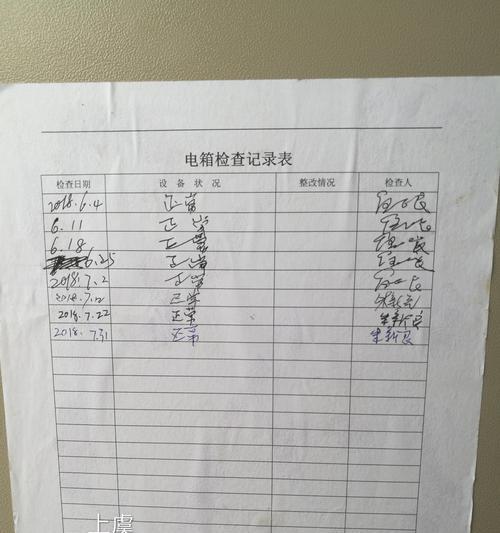 电箱检查记录表
检查日期 设备状况 整改情况 检查人
2018.6.4 正常
6.11 正常
6.18 正常
6.25 正常
2018.7.2 正常
2018.7.12 正常
2018.7.22 正常 朱新良
2018.7.31 正常 朱新良
上虞